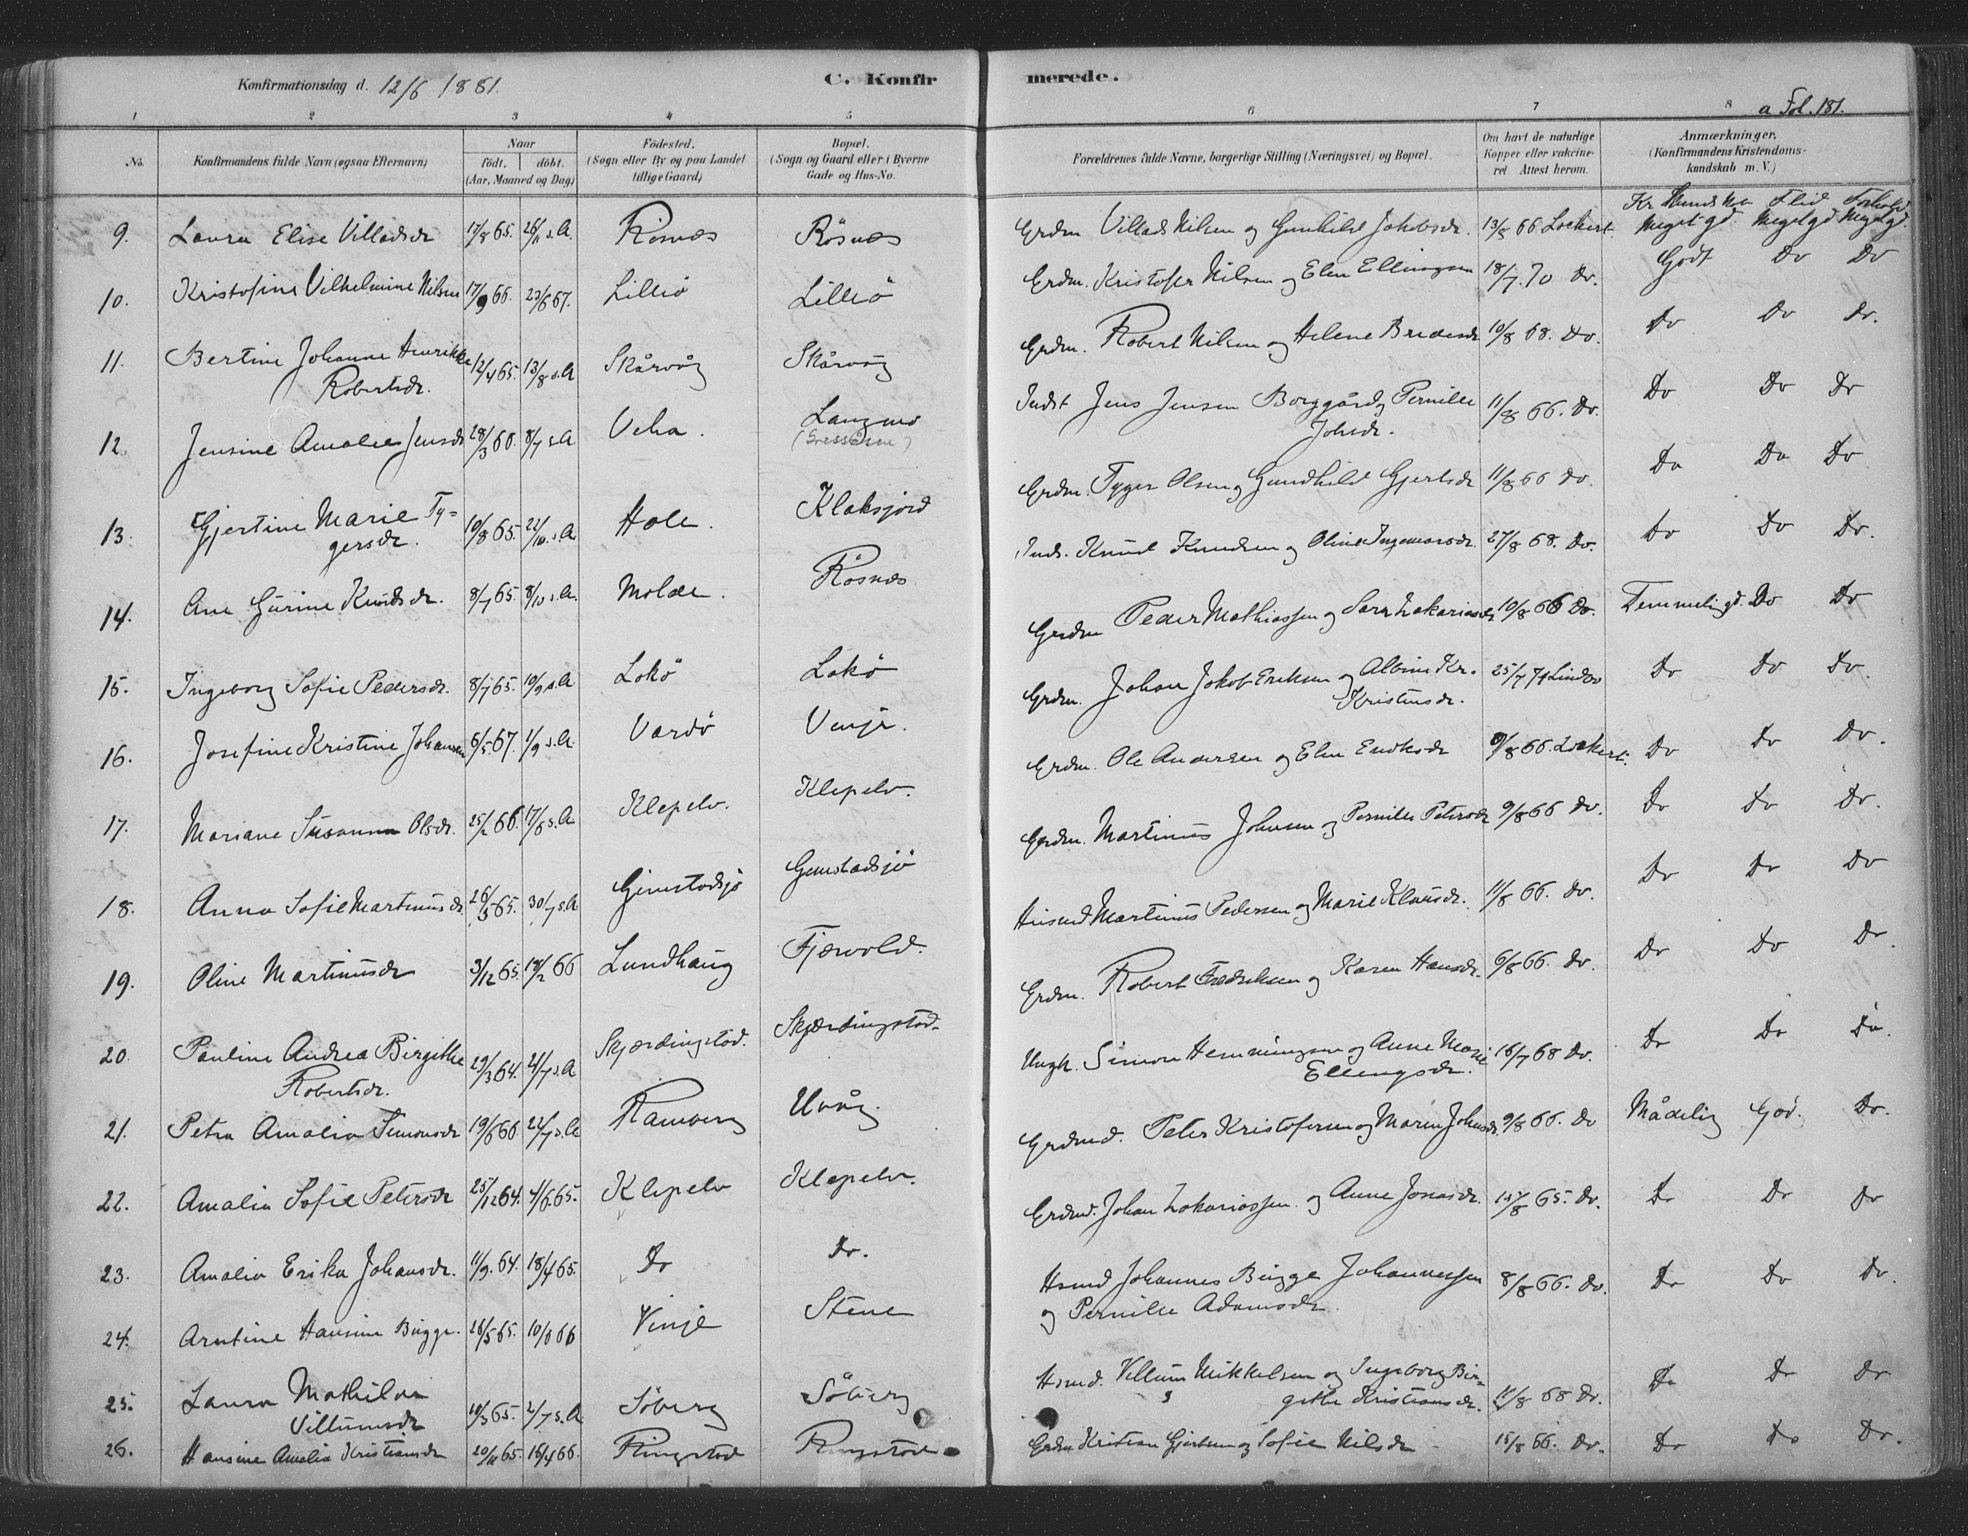 Konfirmationsdag d. 12/6 1881. C. Konfirmerede. a Fol. 181.
1 2 3 4 5 6 7 8
No. Konfirmandens fulde Navn (egsaa Efternavn) Naar født. døbt. (Aar, Maaned og Dag) Fødested. (Sogn eller By og paa Landet tillige Gaard) Bopæl. (Sogn og Gaard eller i Byerne Gade og Hus-No. Forældrenes fulde Navne, borgerlige Stilling (Næringsvei) og Bopæl. Om havt de naturlige Kopper eller vakcineret Attest herom. Anmærkninger. (Konfirmandens Kristendomskundskab m. V.)
Kr Kundska Flid Forhold
9. Laura Elise Villadsdr 17/8 65. 26/11 s.A. Rösnæs Rösnæs Grdm Villads Nilsen og Gunhild Jakobsdr. 13/8 66 Lockert. Meget gd. Meget gd. Meget gd.
10. Kristofine Vilhelmine Nilsen 17/9 66. 23/6 67. Lilleö Lilleö Grdm. Kristofer Nilsen og Elen Ellingsen 18/7 70 Do. Godt Do Do
11. Bertine Johanne Henrikke Robertsdr. 12/4 65. 13/8 s.A Skårvåg Skårvåg Grdm. Robert Nilsen og Helene Bredesdr 10/8 68. Do. Do Do Do.
12. Jensine Amalie Jensdr 28/3 66. 8/7 s.A Veha. Langmo Indst Jens Jensen Borggård og Pernille Johsdr. 11/8 66. Do. Do Do Do
13. Gjertine Marie Tygersdr. 10/8 65. 22/10 s.A Hole. Klaksjord Grdm. Tyger Olsen og Gundhild Gjertsdr 11/8 66 Do. Do Do Do
14. Ane Gurine Knudsdr. 8/7 65. 8/10 s.A. Molde. Rösnæs Inds. Knud Knudsen og Oline Ingemarsdr. 27/8 68. Do. Do Do Do.
15. Ingeborg Sofie Pedersdr. 8/7 65. 10/9 s.A Lokö Lokö Grdm Peder Mathiassen og Sara Zakariasdr 10/8 66 Do. Temmelig gd. Do Do
16. Josefine Kristine Johansen 6/5 67. 1/9 s.A. Vardö Vinje. Grdm. Johan Jakob Eriksen og Albine Kr. Kristensdr. 25/7 71 Lindbo Do Do Do.
17. Mariane Susanna Olsdr. 25/2 66. 17/6 s.A Klepelv. Klepelv. Grdm. Ole Andersen og Elen Enoksdr 9/8 66. Lockert. Do Do Do.
18. Anna Sofie Martinusdr 26/3 65. 30/7 s.A Gimstadsjö Gimstadsjö Grdm. Martinus Johnsen og Pernille Petersdr 9/8 66 Do. Do Do Do.
19. Oline Martinusdr 3/12 65. 18/2 66 Lundhaug Fjærvold. Husmd Martinus Pedersen og Marie Klausdr. 11/8 66. Do. Do Do Do
20. Pauline Andrea Birgitte Robertsdr. 29/3 64. 21/7 s.A Skjærdingstad. Skjærdingstad. Grdm. Robert Fredriksen og Karen Hansdr. 9/8 66. Do. Do Do Do.
21. Petra Amalia Simonsdr 19/6 66 22/7 s.A Ramberg Uvåg. Ungk. Simon Hemmingsen og Anne Marie Ellingsdr. 16/7 68 Do. Do Do Do.
22. Amalia Sofie Petersdr 25/12 64. 4/6 65. Klepelv Klepelv. Grdmd. Peter Kristofersen og Maren Johnsdr. 9/8 66. Do Mådelig God. Do.
23. Amalia Erika Johansdr. 11/9 64. 18/4 65. Do Do. Grdmd. Johan Zakariassen og Anne Jonasdr. 14/8 65. Do. Do Do Do
24. Arntine Hansine Bugge. 28/5 65. 10/8 66 Vinje Stene Hsmd Johannes Bugge Johannessen og Pernille Adamsdr. 8/8 66. Do. Do Do Do.
25. Laura Mathilda Villumsdr 10/3 65. 2/7 s.A Söberg Söberg Hsmd. Villum Mikkelsen og Ingeborg Birgitte Kristiansdr. 11/8 68 Do. Do Do Do
26. Hansine Amalia Kristiansdr 20/11 65. 16/4 66. Ringstad Ringstad Grdm Kristian Gjertsen og Sofie Nilsdr 15/8 66. Do. Do Do Do.